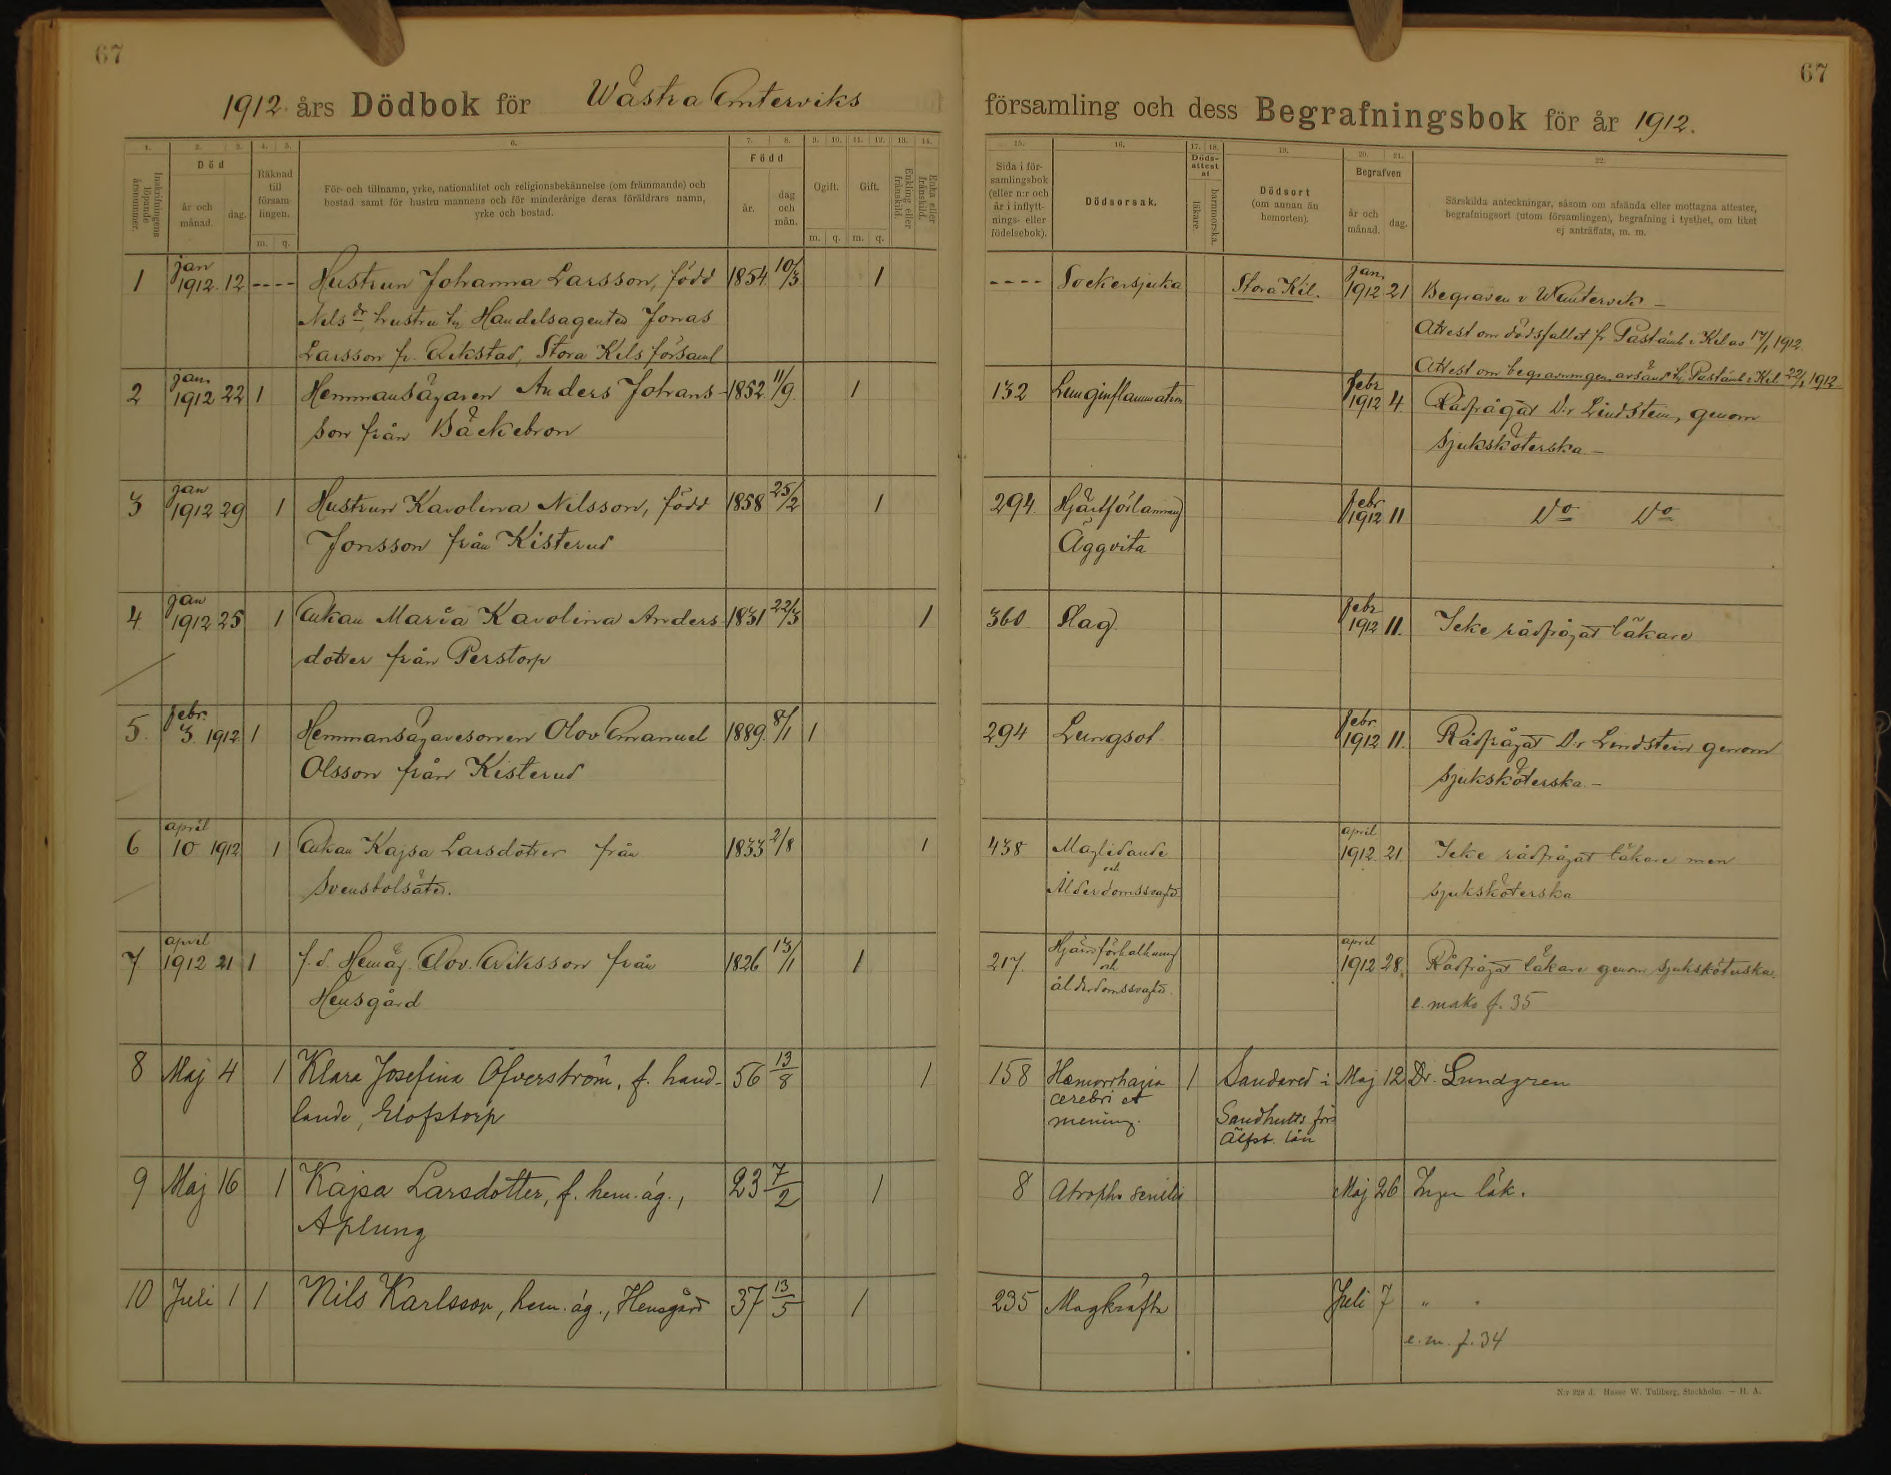 67
1912. års Dödbok för Västra Ämterviks
1. 2. 3. 4. 5. 6. 7. 8. 9. 10. 11. 12. 13. 14.
Inskrifningens löpande årsnummer.
Död
år och månad.
dag.
Räknad till församlingen.
m. q.
För- och tillnamn, yrke, nationalitet och religionsbekännelse (om främmande) och
bostad samt för hustru mannens och för minderårige deras föräldrars namn,
yrke och bostad.
Född
år.
dag och mån.
Ogift. Gift.
m. q. m. q.
Enkling eller frånskild.
Enka eller frånskild.
1 jan 1912 12 ---- Hustrun Johanna Larsson, född 1854 10/3 1
Nils dr, hustru t. Handelsagenten Jonas
Larsson fr. Arkstad, Stora Kils församl
2 jan. 1912 22 1 Hemmansägaren Anders Johans- 1852 11/9 1
son från Bäckebron
3 jan 1912 29 1 Hustrun Karolina Nilsson, född 1858 25/2 1
Jonsson från Kisterud
4 jan 1912 25 1 Enkan Maria Karolina Anders- 1831 22/3 1
dotter från Perstorp
5. febr. 3. 1912 1 Hemmansägaresonen Olov Emanuel 1889. 8/1 1
Olsson från Kisterud
6 april 10 1912 1 Enkan Kajsa Larsdotter från 1833 2/8 1
Svensbolsäter.
7 april 1912 21 1 f.d. Hemäg. Olov Eriksson från 1826 13/1 1
Hensgård
8 Maj 4 1 Klara Josefina Öfverström, f. hand- 56 13/8 1
lande, Elofstorp
9 Maj 16 1 Kajsa Larsdotter, f. hem.äg., 23 7/2 1
Aplung
10 Juli 1 1 Nils Karlsson, hem.äg., Hensgård 37 13/5 1
67
församling och dess Begrafningsbok för år 1912.
15. 16. 17. 18. 19. 20. 21. 22.
Sida i för-
samlingsbok
(eller n:r och
år i inflytt-
nings- eller
födelsebok).
Dödsorsak.
Döds-
attest
af
läkare.
barnmorska.
Dödsort
(om annan än
hemorten).
Begrafven
år och månad.
dag.
Särskilda anteckningar, såsom om afsända eller mottagna attester,
begrafningsort (utom församlingen), begrafning i tysthet, om liket
ej anträffats, m. m.
---- Sockersjuka Stora Kil. jan. 1912 21 Begraven i V Ämtervik –
Attest om dödsfallet fr Pastämb. i Kil av 17/1 1912.
Attest om begravningen avsänd t. Pastämb. i Kil 22/1 1912
132 Lunginflammation febr 1912 4. Rådfrågat Dr Lindstein, genom
sjuksköterska –
294 Hjärtförlamning febr 1912 11 Do Do
Äggvita
360 Slag febr 1912 11. Icke rådfrågat läkare
294 Lungsot febr 1912 11. Rådfrågat Dr Lindstein genom
sjuksköterska –
438 Maglidande april 1912 21. Icke rådfrågat läkare men
och
Ålderdomssvaghet sjuksköterska
217. Hjärnförkalkning april 1912 28. Rådfrågat läkare genom sjuksköterska.
och
ålderdomssvaghet. e. make f. 35
158 Hæmorrhagia 1 Sandared i Maj 12 Dr. Lundgren
cerebri et
mening. Sandhults förs
Älfsb. län
8 Atroph. senilis Maj 26 Ingen läk.
235 Magkräfta Juli 7 " "
e. m. f. 34
N:r 228 d. Hasse W. Tullberg, Stockholm. – H. A.